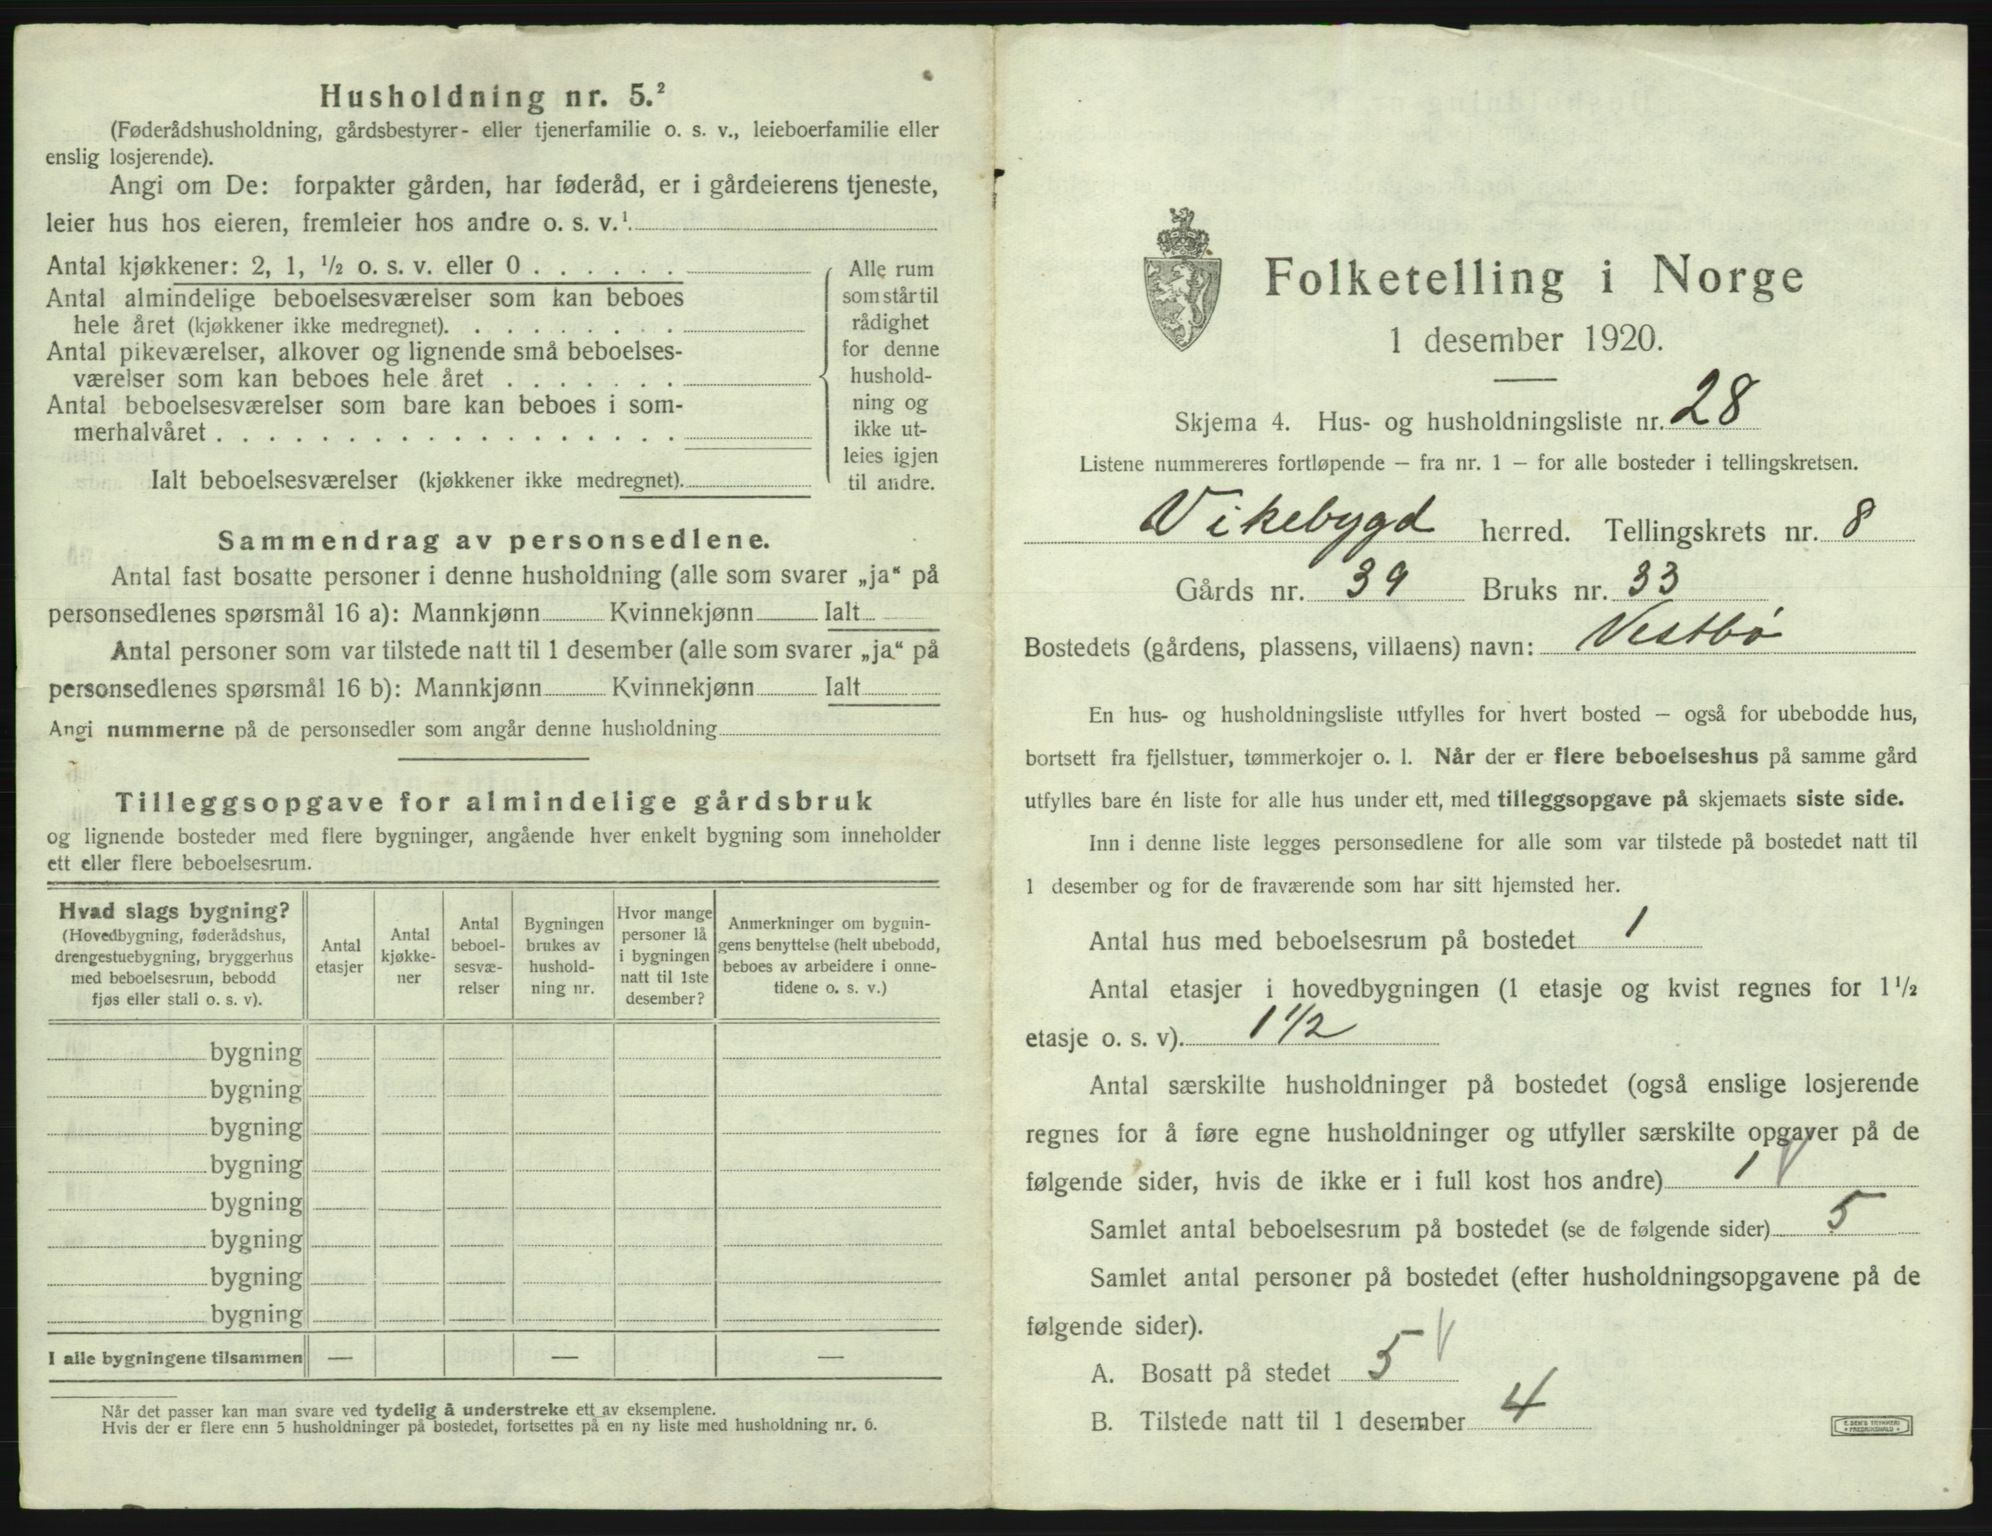 Husholdning nr. 5.²
(Føderådshusholdning, gårdsbestyrer- eller tjenerfamilie o. s. v., leieboerfamilie eller
enslig losjerende).
Angi om De: forpakter gården, har føderåd, er i gårdeierens tjeneste,
leier hus hos eieren, fremleier hos andre o. s. v.¹
Antal kjøkkener: 2, 1, ½ o. s. v. eller 0 . . . . . .
Antal almindelige beboelsesværelser som kan beboes
hele året (kjøkkener ikke medregnet). . . . . . . . .
Antal pikeværelser, alkover og lignende små beboelses-
værelser som kan beboes hele året . . . . . . .
Antal beboelsesværelser som bare kan beboes i som-
merhalvåret . . . . . . . . . . . . . . . . . .
Ialt beboelsesværelser (kjøkkener ikke medregnet).
Alle rum
som står til
rådighet
for denne
hushold-
ning og
ikke ut-
leies igjen
til andre.
Sammendrag av personsedlene.
Antal fast bosatte personer i denne husholdning (alle som svarer „ja“ på
personsedlenes spørsmål 16 a): Mannkjønn Kvinnekjønn Ialt
Antal personer som var tilstede natt til 1 desember (alle som svarer „ja“ på
personsedlenes spørsmål 16 b): Mannkjønn Kvinnekjønn Ialt
Angi nummerne på de personsedler som angår denne husholdning
Tilleggsopgave for almindelige gårdsbruk
og lignende bosteder med flere bygninger, angående hver enkelt bygning som inneholder
ett eller flere beboelsesrum.
Hvad slags bygning?
(Hovedbygning, føderådshus,
drengestuebygning, bryggerhus
med beboelsesrum, bebodd
fjøs eller stall o. s. v).
Antal
etasjer
Antal
kjøkke-
ner
Antal
beboel-
sesvæ-
relser
Bygningen
brukes av
hushold-
ning nr.
Hvor mange
personer lå
i bygningen
natt til 1ste
desember?
Anmerkninger om bygnin-
gens benyttelse (helt ubebodd,
beboes av arbeidere i onne-
tidene o. s. v.)
bygning
bygning
bygning
bygning
bygning
bygning
bygning
bygning
I alle bygningene tilsammen — — —
Når det passer kan man svare ved tydelig å understreke ett av eksemplene.
Hvis der er flere enn 5 husholdninger på bostedet, fortsettes på en ny liste med husholdning nr. 6.
Folketelling i Norge
1 desember 1920.
Skjema 4. Hus- og husholdningsliste nr. 28
Listene nummereres fortløpende – fra nr. 1 – for alle bosteder i tellingskretsen.
Vikebygd herred. Tellingskrets nr. 8
Gårds nr. 39 Bruks nr. 33
Bostedets (gårdens, plassens, villaens) navn: Vestbø
En hus- og husholdningsliste utfylles for hvert bosted – også for ubebodde hus,
bortsett fra fjellstuer, tømmerkojer o. l. Når der er flere beboelseshus på samme gård
utfylles bare én liste for alle hus under ett, med tilleggsopgave på skjemaets siste side.
Inn i denne liste legges personsedlene for alle som var tilstede på bostedet natt til
1 desember og for de fraværende som har sitt hjemsted her.
Antal hus med beboelsesrum på bostedet 1
Antal etasjer i hovedbygningen (1 etasje og kvist regnes for 1½
etasje o. s. v). 1 1/2
Antal særskilte husholdninger på bostedet (også enslige losjerende
regnes for å føre egne husholdninger og utfyller særskilte opgaver på de
følgende sider, hvis de ikke er i full kost hos andre) 1
Samlet antal beboelsesrum på bostedet (se de følgende sider) 5
Samlet antal personer på bostedet (efter husholdningsopgavene på de
følgende sider).
A. Bosatt på stedet 5
B. Tilstede natt til 1 desember 4